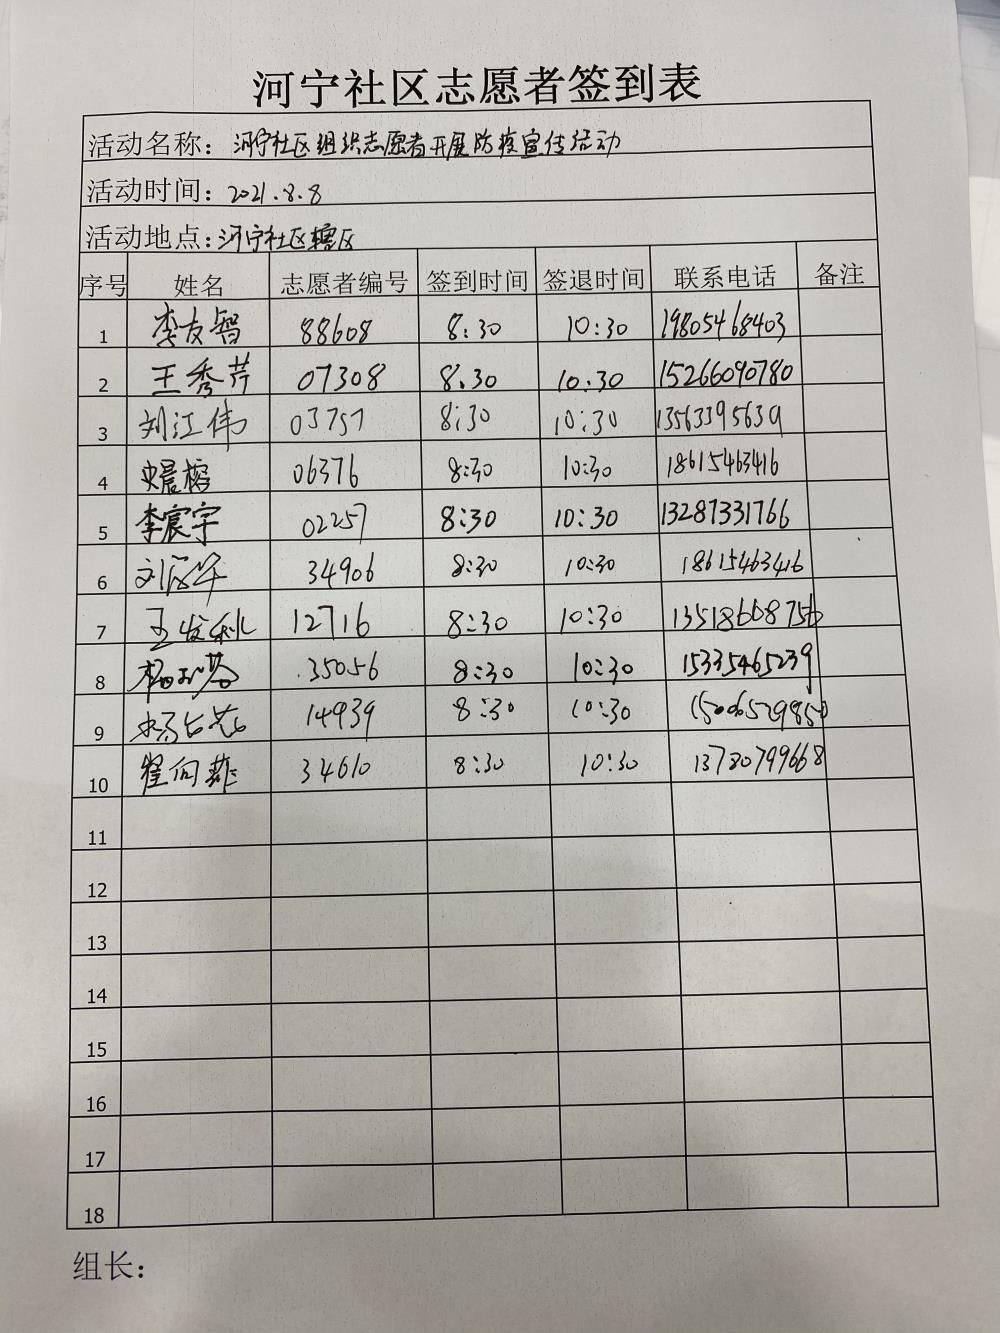 河宁社区志愿者签到表
活动名称：河宁社区组织志愿者开展防疫宣传活动
活动时间：2021.8.8
活动地点：河宁社区辖区
序号 姓名 志愿者编号 签到时间 签退时间 联系电话 备注
1 李友智 88608 8:30 10:30 19805468403
2 王秀芹 07308 8.30 10:30 15266090780
3 刘江伟 03757 8:30 10:30 13563395639
4 06376 8:30 10:30 18615463416
5 李宸宇 02257 8:30 10:30 13287331766
6 34906 8:30 10:30 18615463416
7 12716 8:30 10:30 13518668756
8 35056 8:30 10:30 15335465239
9 14939 8:30 10:30 15006529850
10 翟向菲 34610 8:30 10:30 13780799668
11
12
13
14
15
16
17
18
组长：